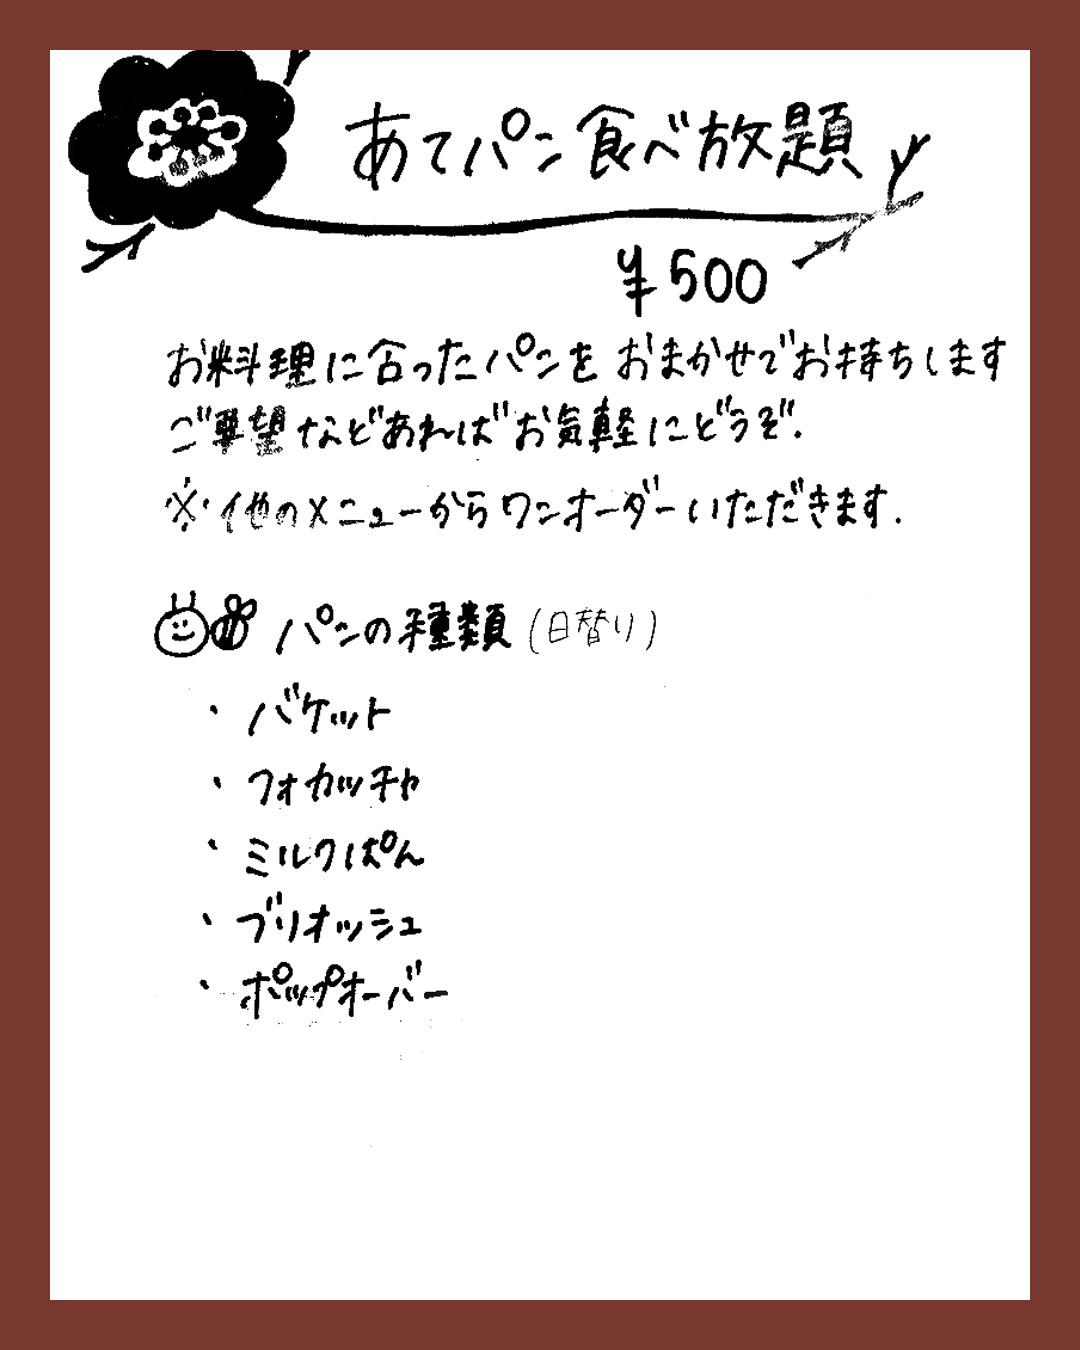 あてパン食べ放題
¥500
お料理に合ったパンを おまかせでお持ちします
ご要望などあればお気軽にどうぞ.
※他のメニューからワンオーダーいただきます.
パンの種類(日替り)
・バケット
・フォカッチャ
・ミルクぱん
・ブリオッシュ
・ポップオーバー